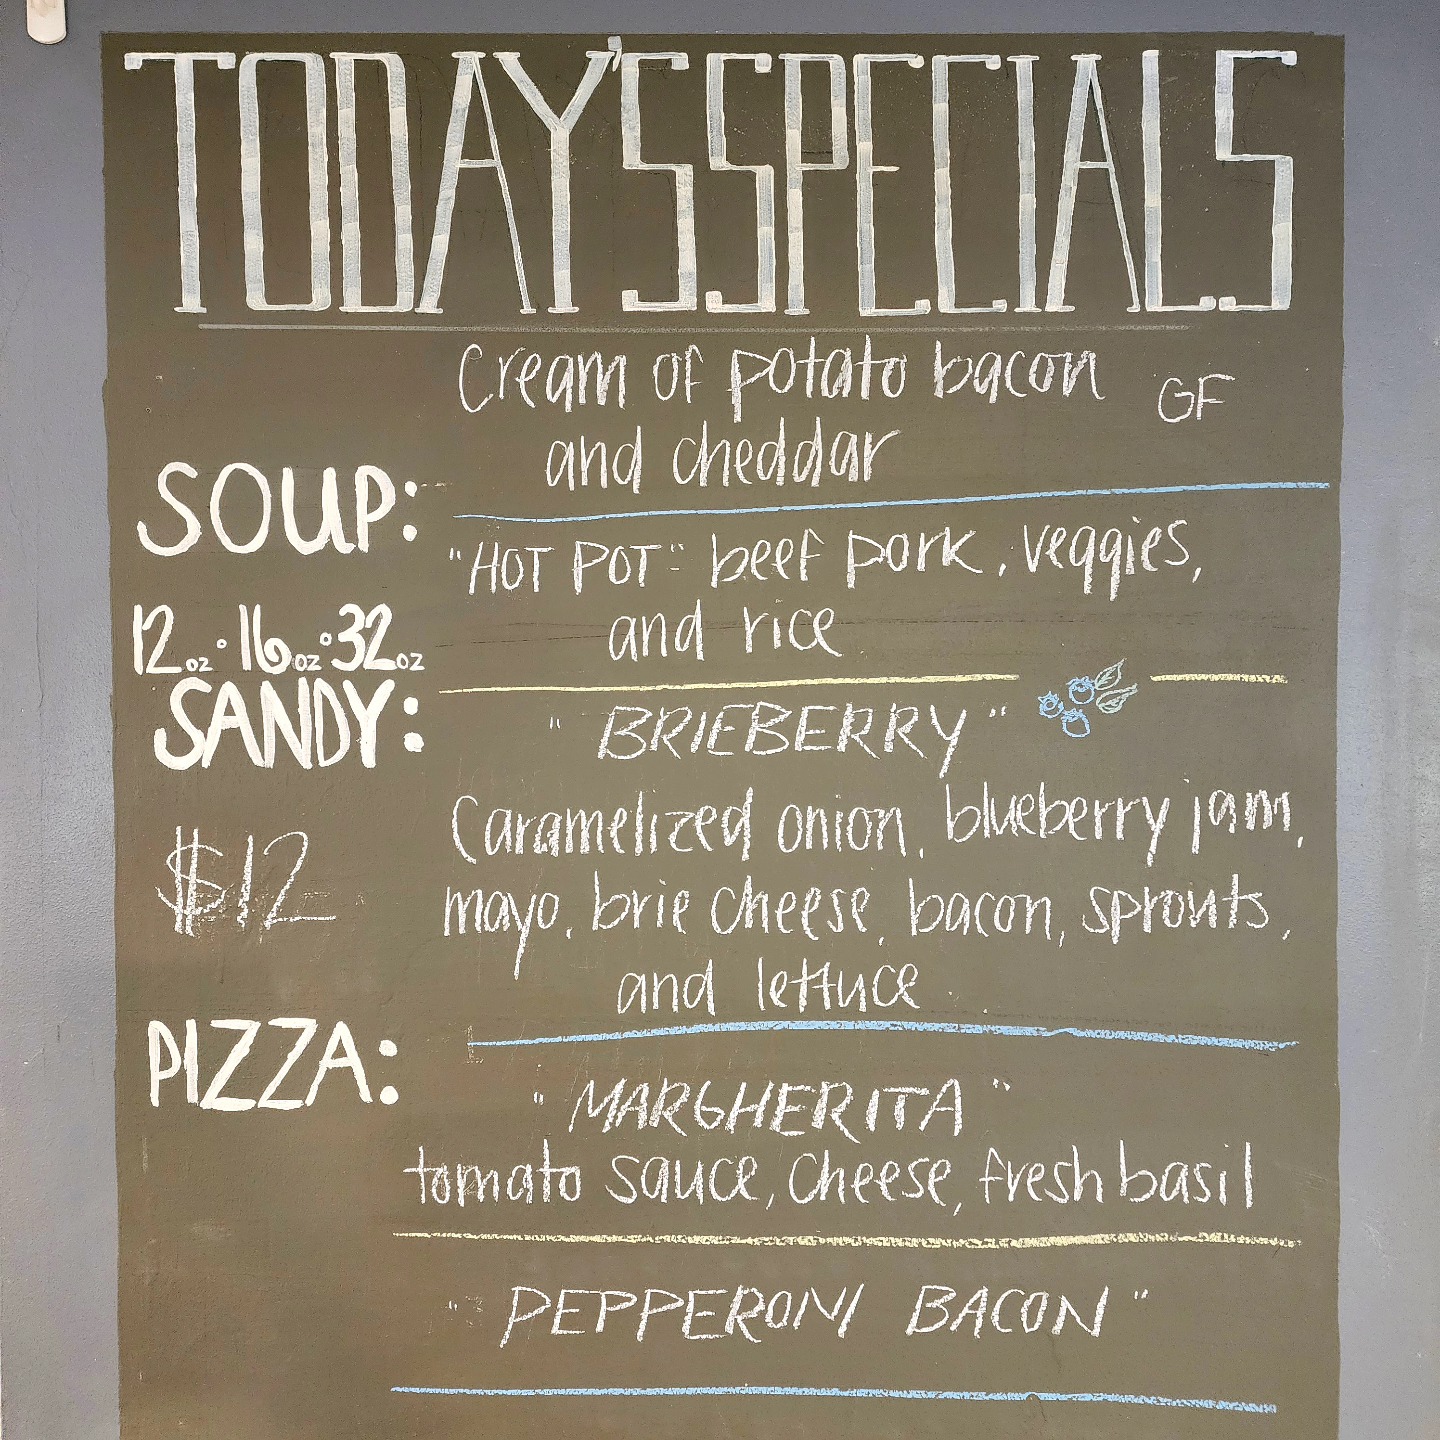 TODAY'S SPECIALS
Cream of potato bacon GF
and cheddar
SOUP:
"HOT POT" beef pork, veggies,
and rice
12oz · 16oz · 32oz
SANDY:
"BRIEBERRY"
Caramelized onion, blueberry jam,
$12
mayo, brie cheese, bacon, sprouts,
and lettuce
PIZZA:
"MARGHERITA"
tomato sauce, cheese, fresh basil
"PEPPERONI BACON"